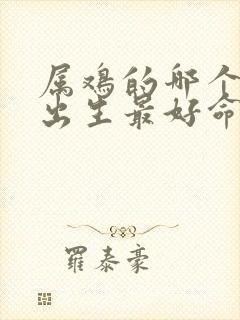 属鸡的哪个
出生最好命
羅泰豪